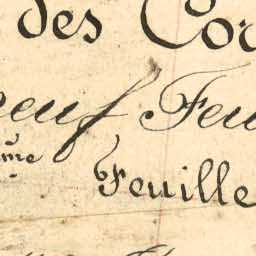 des Cor
neuf Feu
ème Feuille